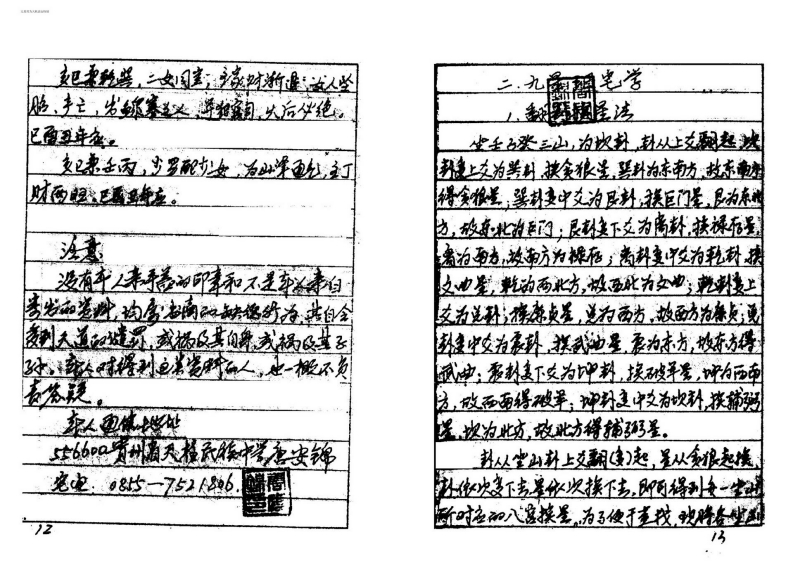 亥巳兼乾巽，二女同室；家财渐退，
胎，多亡，
巳酉丑年应。
亥巳兼壬丙，少男配少女，为山泽通气，主丁
财两旺，巳酉丑年应。
注意
没有本人亲手盖的印章和不是本人亲自
寄发的资料，均属
受到天道的谴罚，或祸及其自身，或祸及其子
孙，本人对得到这类资料的人，也一概不负
责答疑。
本人通信地址
556600贵州省天柱民族中学唐安锦
宅电：0855—7521806
12
二、九星宅学
1、翻星法
坐壬子癸三山，为坎卦，卦从上爻翻起，坎
卦变上爻为巽卦，挨贪狼星，巽卦为东南方，故东南方
得贪狼星；巽卦变中爻为艮卦，挨巨门星，艮为东北
方，故东北为巨门；艮卦变下爻为离卦，挨禄存星，
离为南方，故南方为禄存；离卦变中爻为乾卦，挨
文曲星，乾为西北方，故西北为文曲；乾卦变上
爻为兑卦，挨廉贞星，兑为西方，故西方为廉贞；兑
卦变中爻为震卦，挨武曲星，震为东方，故东方得
武曲；震卦变下爻为坤卦，挨破军星，坤为西南
方，故西南得破军；坤卦变中爻为坎卦，挨辅弼
星，坎为北方，故北方得辅弼星。
卦从坐山卦上爻翻(变)起，星从贪狼起挨，
卦依次变下去，星依次挨下去，即可得到每一坐山
所对应的八宫挨星。为了便于查找，现将各坐山
13